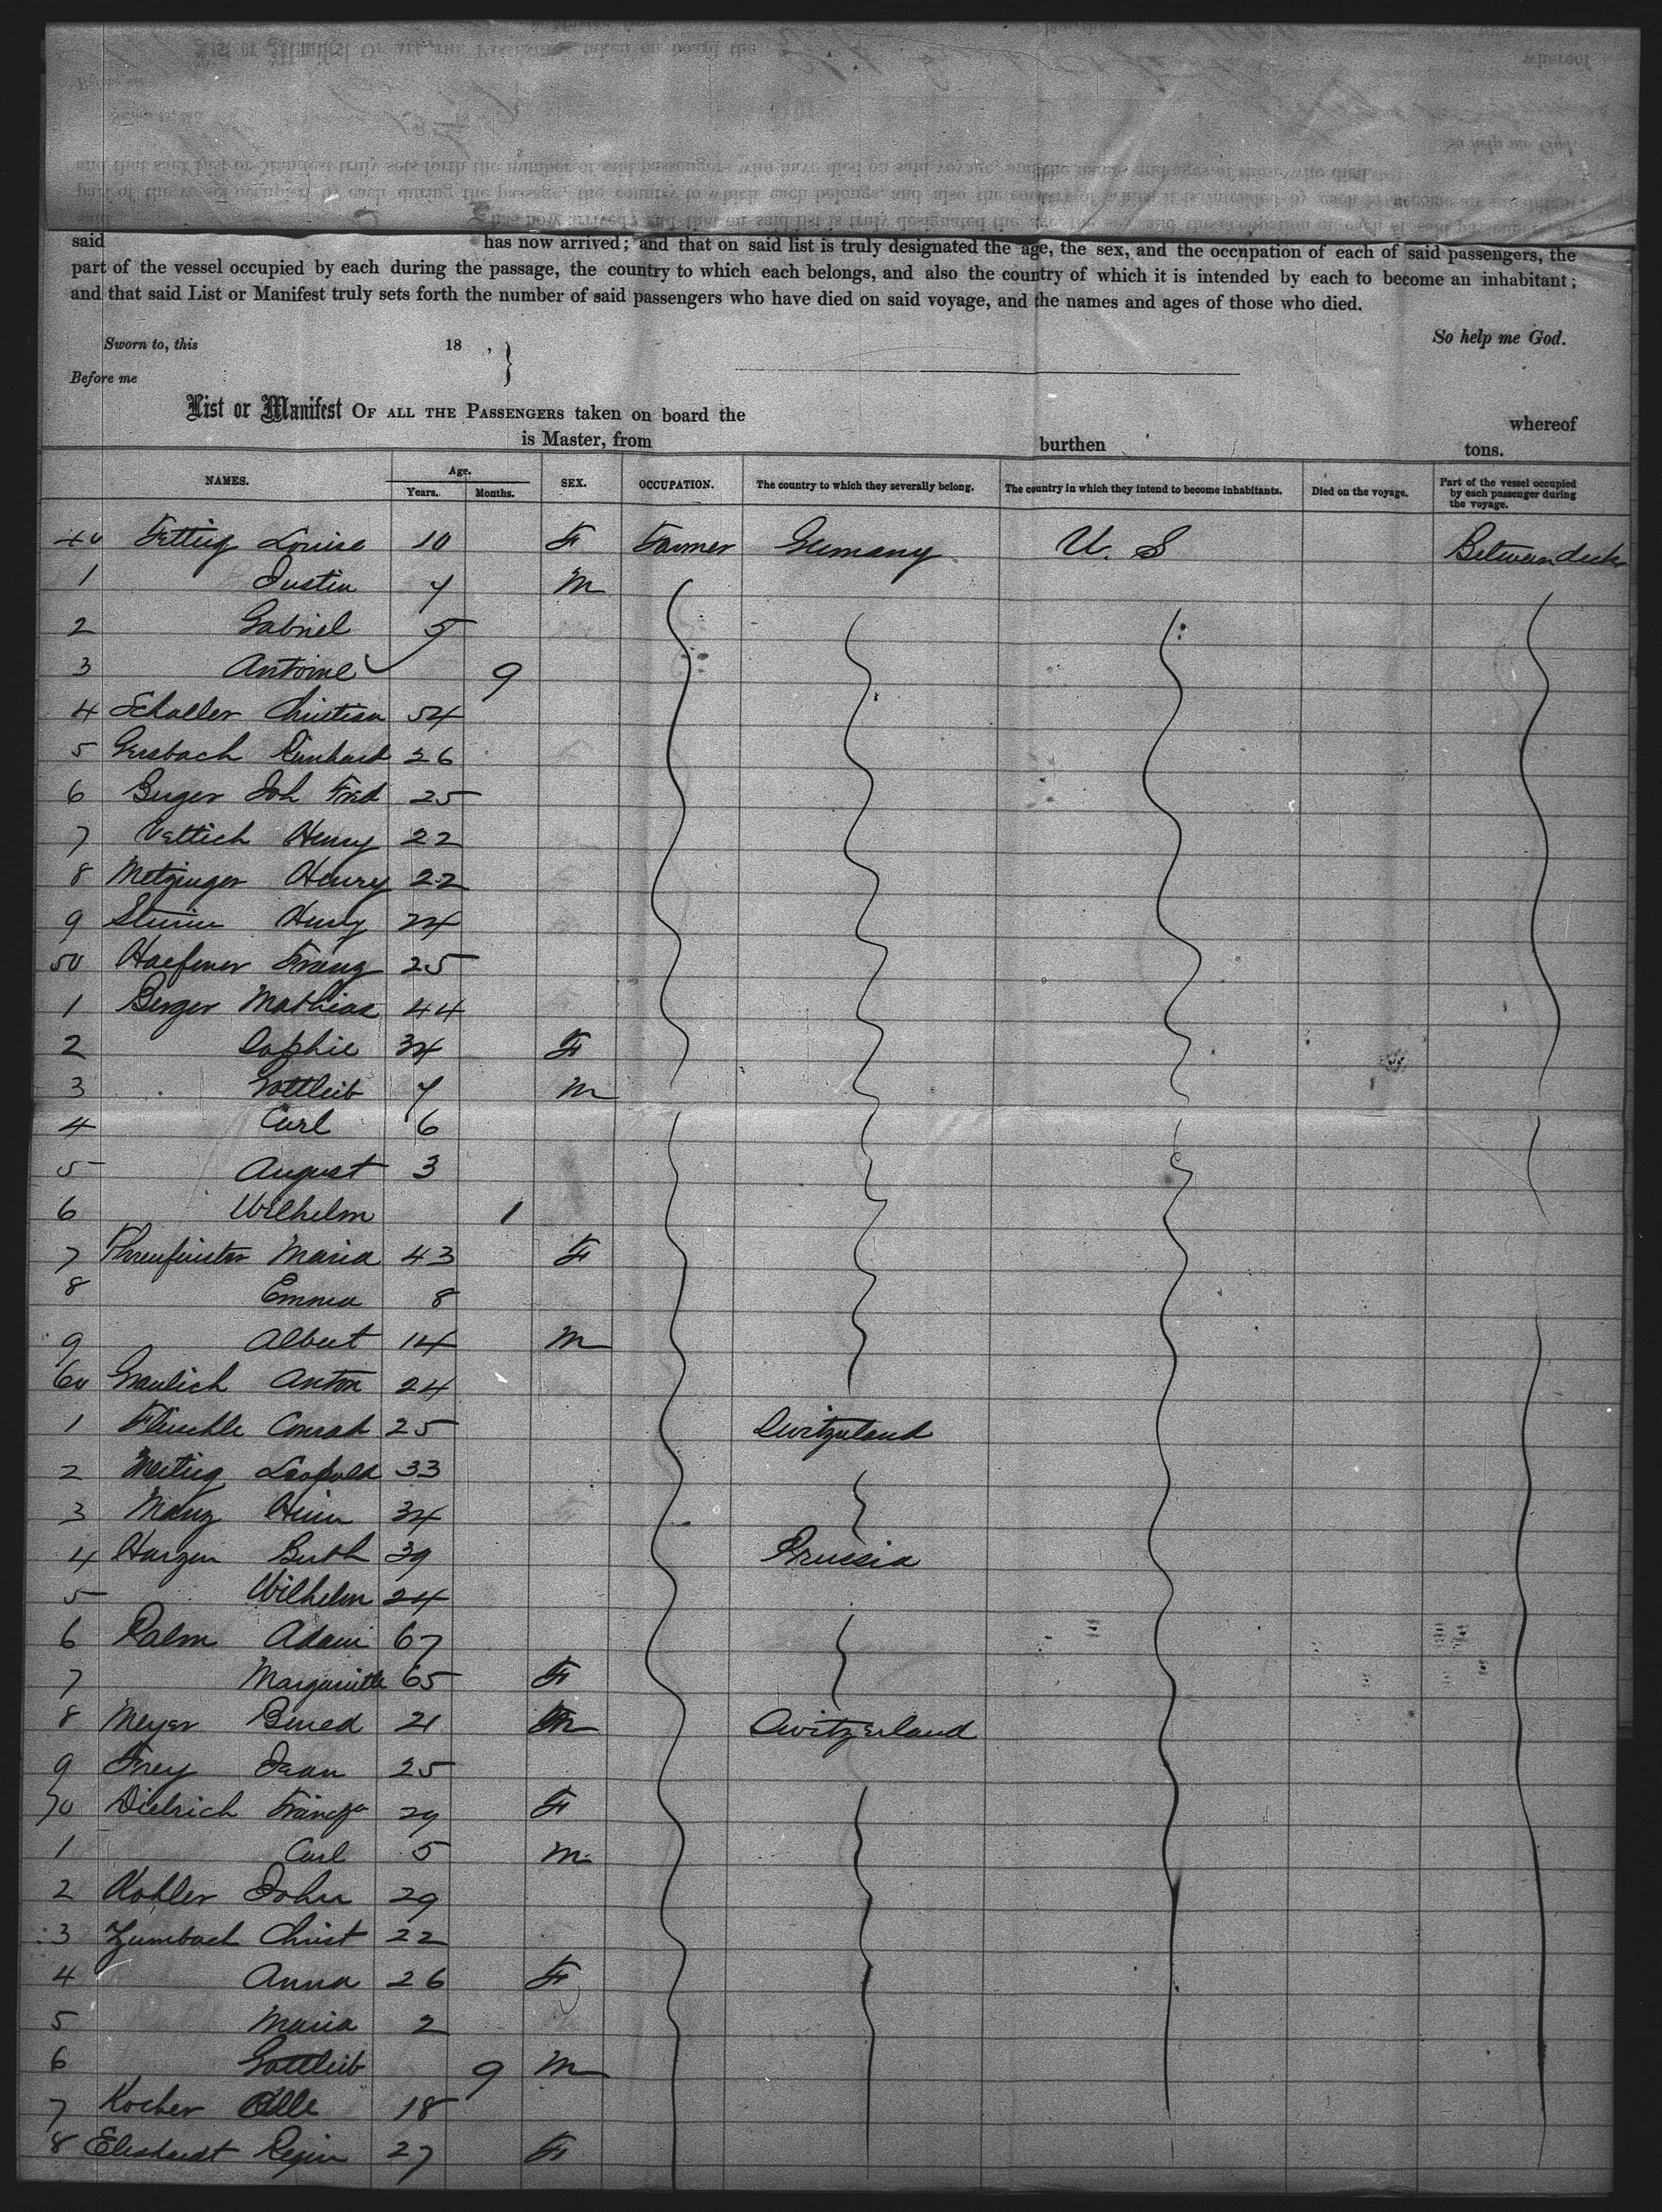 said has now arrived; and that on said list is truly designated the age, the sex, and the occupation of each of said passengers, the
part of the vessel occupied by each during the passage, the country to which each belongs, and also the country of which it is intended by each to become an inhabitant;
and that said List or Manifest truly sets forth the number of said passengers who have died on said voyage, and the names and ages of those who died.
So help me God.
Sworn to, this 18 , }
Before me
List or Manifest OF ALL THE PASSENGERS taken on board the whereof
is Master, from burthen tons.
NAMES. Age. Years. Months. SEX. OCCUPATION. The country to which they severally belong. The country in which they intend to become inhabitants. Died on the voyage. Part of the vessel occupied by each passenger during the voyage.
40 Fettig Louise 10 F Farmer Germany U. S Betweendeck
1 Justin 7 M
2 Gabriel 5
3 Antoine 9
4 Schaller Christian 54
5 Gersbach Reinhard 26
6 Joh Fred 25
7 Vettich Henry 22
8 Metzinger Henry 22
9 Henry 24
50 Haefener Franz 25
1 Berger Mathias 44
2 Sophie 34 F
3 Gottleib 7 M
4 Carl 6
5 August 3
6 Wilhelm 1
7 Maria 43 F
8 Emma 8
9 Albert 14 M
60 Anton 24
1 Conrad 25 Switzerland
2 Leopold 33
3 Manz 34
4 Harzen 39 Prussia
5 Wilhelm 24
6 Palm Adam 67
7 Marguerithe 65 F
8 Meyer Bened 21 M Switzerland
9 Frey Jean 25
70 Dietrich 29 F
1 Carl 5 M
2 Kohler John 29
3 Zumbach Christ 22
4 Anna 26 F
5 Maria 2
6 Gottleib 9 M
7 Kocher 18
8 27 F